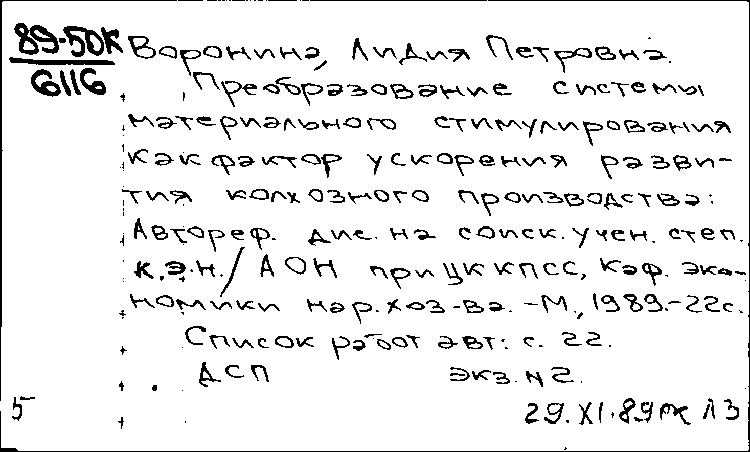 89-50К
6116
Воронина, Лидия Петровна.
Преобразование системы
материального стимулирования
как фактор ускорения разви-
тия колхозного производства:
Автореф. дис. на соиск. учен. степ.
к.э.н./АОН при ЦК КПСС, Каф. эко-
номики нар. хоз-ва. -М., 1989.-22с.
Список работ авт: с. 22.
ДСП экз. N 2.
5
29.XI.89